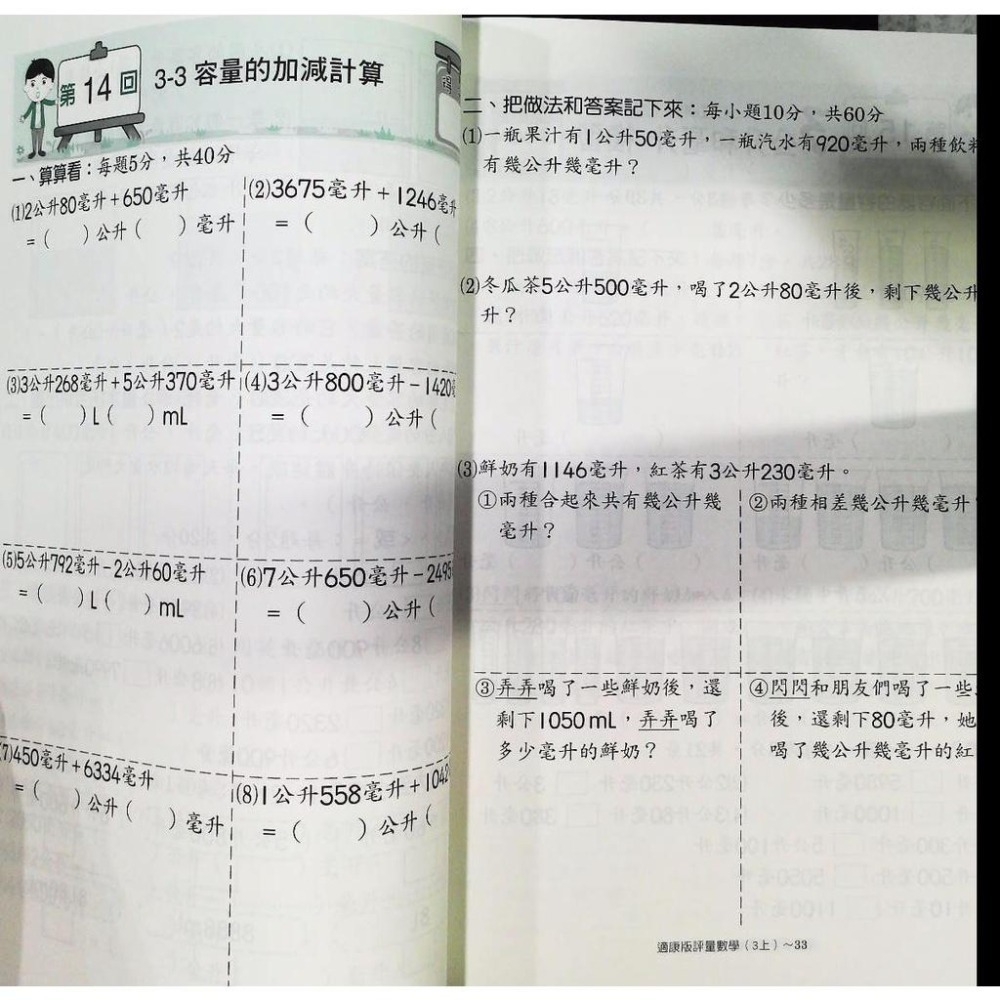 第14回
3-3 容量的加減計算
一、算算看：每題5分，共40分
(1)2公升80毫升＋650毫升
＝(　)公升(　)毫升
(2)3675毫升＋1246毫升
＝(　)公升(
(3)3公升268毫升＋5公升370毫升
＝(　)L(　)mL
(4)3公升800毫升－1420
＝(　)公升(
(5)5公升792毫升－2公升60毫升
＝(　)L(　)mL
(6)7公升650毫升－2495
＝(　)公升(
(7)450毫升＋6334毫升
＝(　)公升(　)毫升
(8)1公升558毫升＋1042
＝(　)公升(
二、把做法和答案記下來：每小題10分，共60分
(1)一瓶果汁有1公升50毫升，一瓶汽水有920毫升，兩種飲料
有幾公升幾毫升？
(2)冬瓜茶5公升500毫升，喝了2公升80毫升後，剩下幾公升
升？
(3)鮮奶有1146毫升，紅茶有3公升230毫升。
①兩種合起來共有幾公升幾
毫升？
②兩種相差幾公升幾毫升？
③弄弄喝了一些鮮奶後，還
剩下1050mL，弄弄喝了
多少毫升的鮮奶？
④閃閃和朋友們喝了一些
後，還剩下80毫升，她
喝了幾公升幾毫升的紅
適康版評量數學（3上）～33